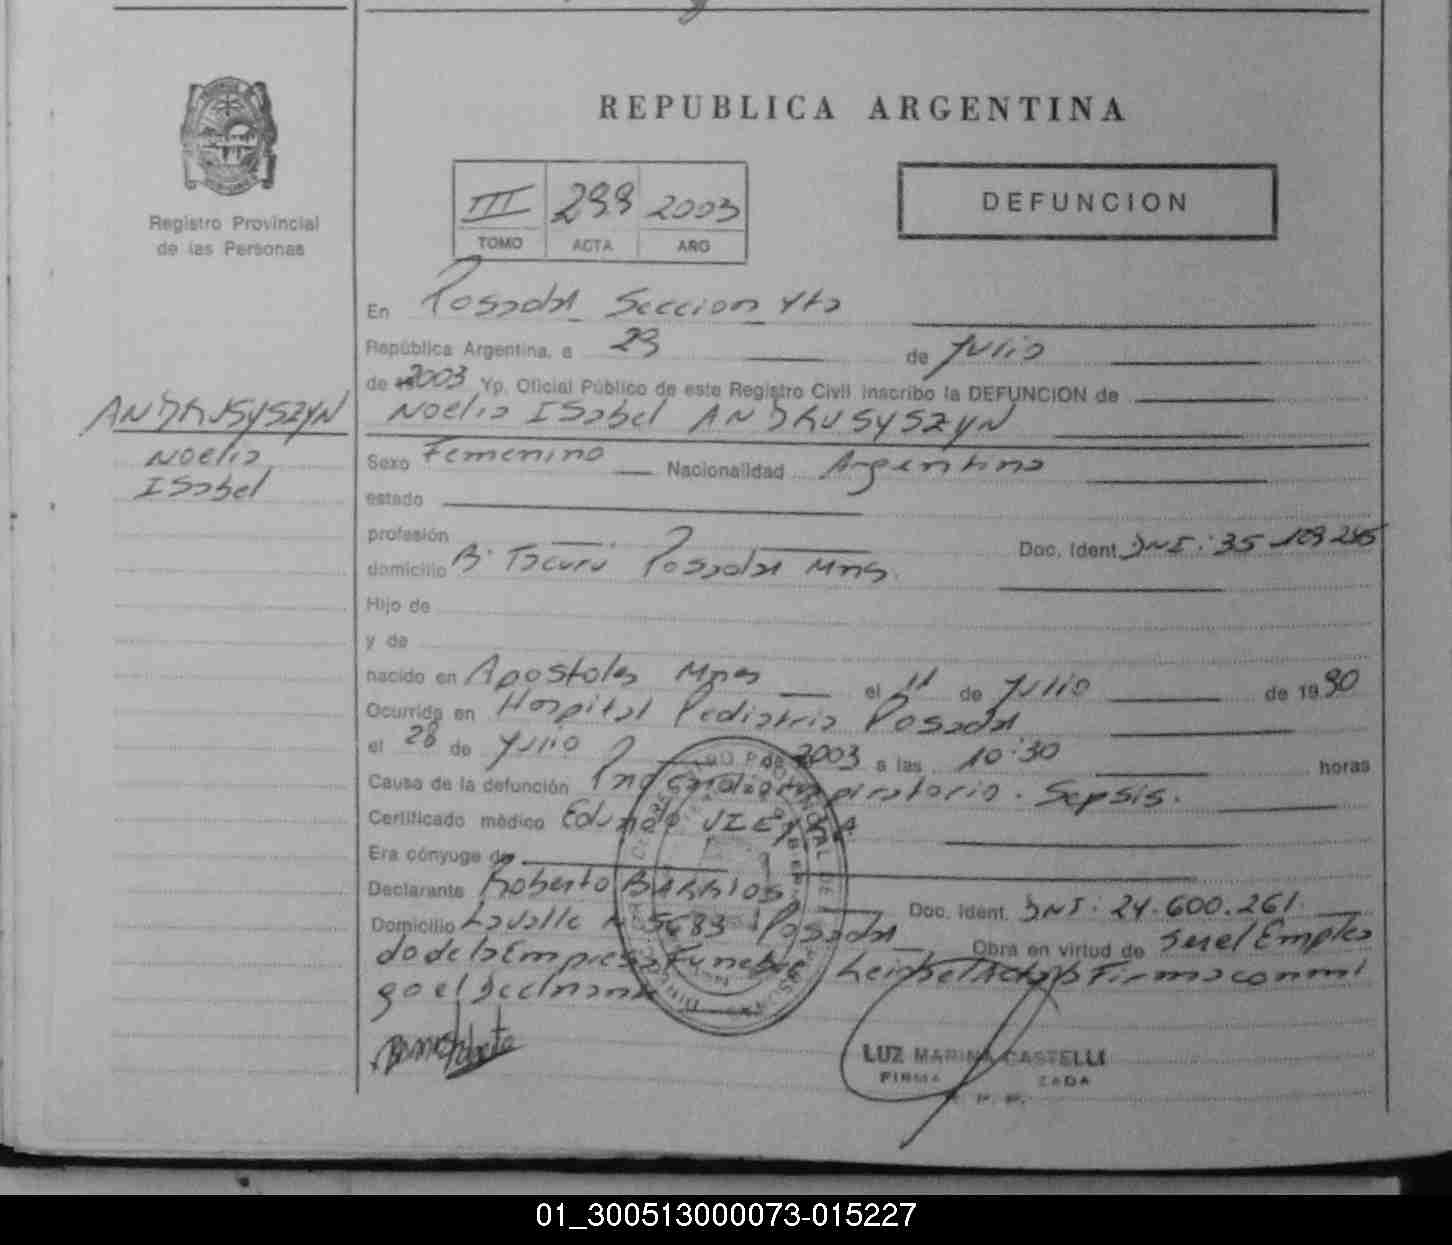 REPUBLICA ARGENTINA
Registro Provincial
de las Personas
III 299 2003
TOMO ACTA AÑO
DEFUNCION
En Posadas Seccion 4ta
República Argentina, a 29 de Julio
de 2003 Yo, Oficial Público de este Registro Civil inscribo la DEFUNCION de
Noelia Isabel ANDRUSYSZYN
ANDRUSYSZYN
Noelia
Isabel
Sexo Femenino Nacionalidad Argentina
estado
profesión Doc. Ident. DNI: 35
domicilio B° Tacuru Posadas Mns.
Hijo de
y de
nacido en Apostoles Mnes el 11 de Julio de 1990
Ocurrida en Hospital Pediatria Posadas
el 28 de Julio de 2003 a las 10:30 horas
Causa de la defunción Paro Cardiorrespiratorio. Sepsis.
Certificado médico VIEYRA
Era cónyuge de
Declarante Roberto BARRIOS Doc. Ident. DNI. 24.600.261
Domicilio Lavalle N 5683 Posadas Obra en virtud de Ser el Emplea
do de la Empresa Funebre Firma conmi
go el Declarante
LUZ MARINA CASTELLI
01_300513000073-015227